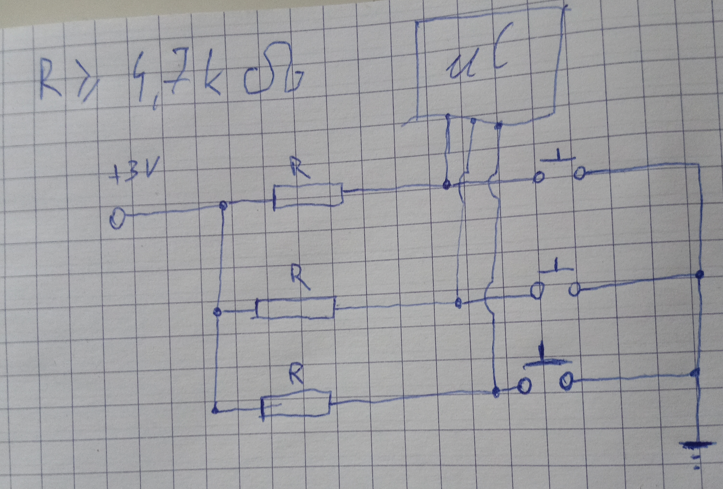 R ≥ 4,7k Ω
uC
+3V
R
R
R